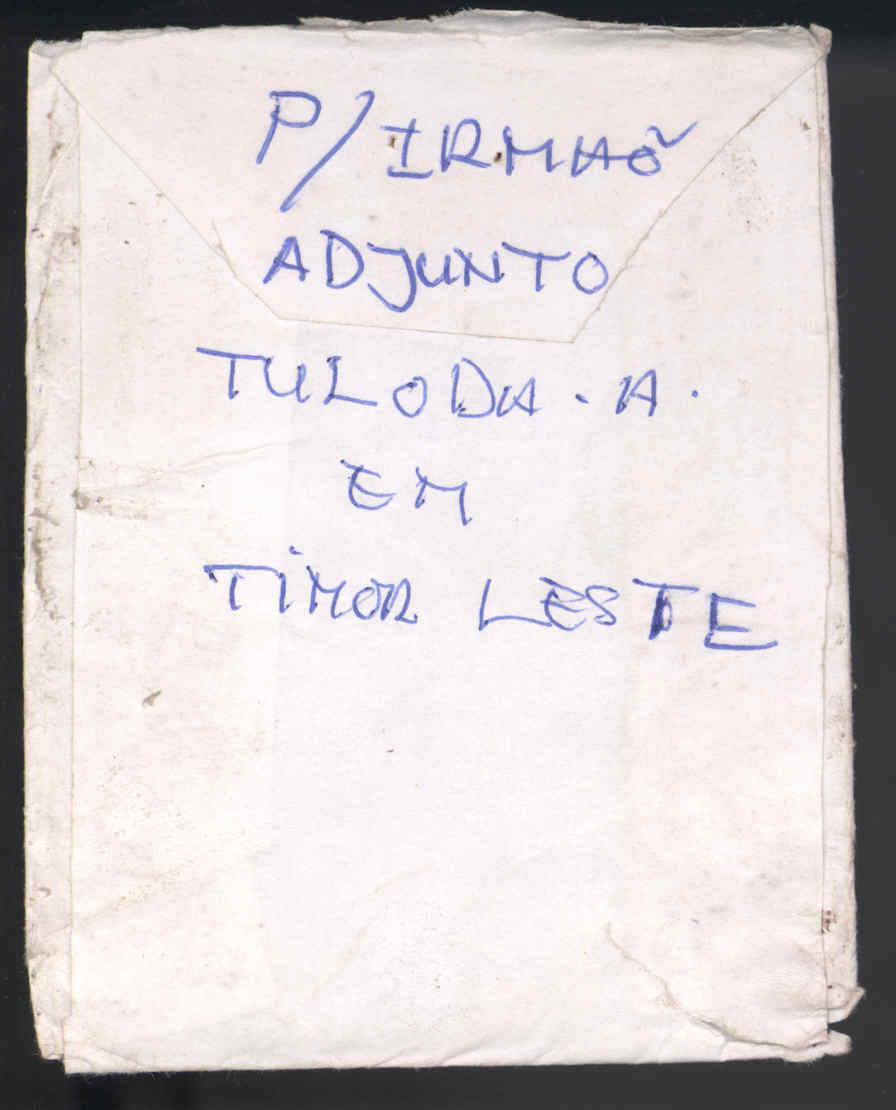 P/IRMAÕ
ADJUNTO
TULODA.A.
EM
TIMOR LESTE